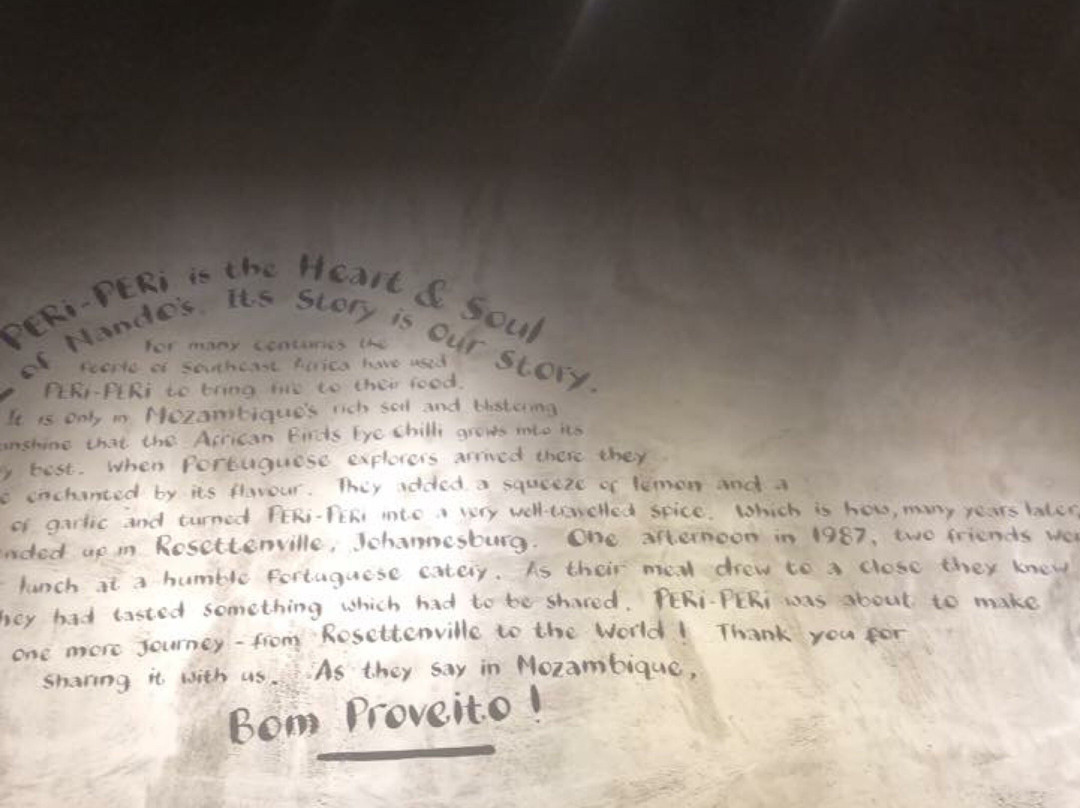 PERi-PERi is the Heart & Soul
of Nando's. Its Story is Our Story.
For many centuries the
People of Southeast Africa have used
PERi-PERi to bring fire to their food.
It is Only in Mozambique's rich soil and blistering
unshine that the African Birds Eye Chilli grows into its
y best. When Portuguese explorers arrived there they
e enchanted by its flavour. They added a squeeze of lemon and a
of garlic and turned PERi-PERi into a very well-travelled spice. Which is how, many years later,
nded up in Rosettenville, Johannesburg. One afternoon in 1987, two friends we
lunch at a humble Portuguese eatery. As their meal drew to a close they knew
hey had tasted something which had to be shared. PERi-PERi was about to make
one more Journey - from Rosettenville to the World! Thank you for
Sharing it with us. As they say in Mozambique,
Bom Proveito!